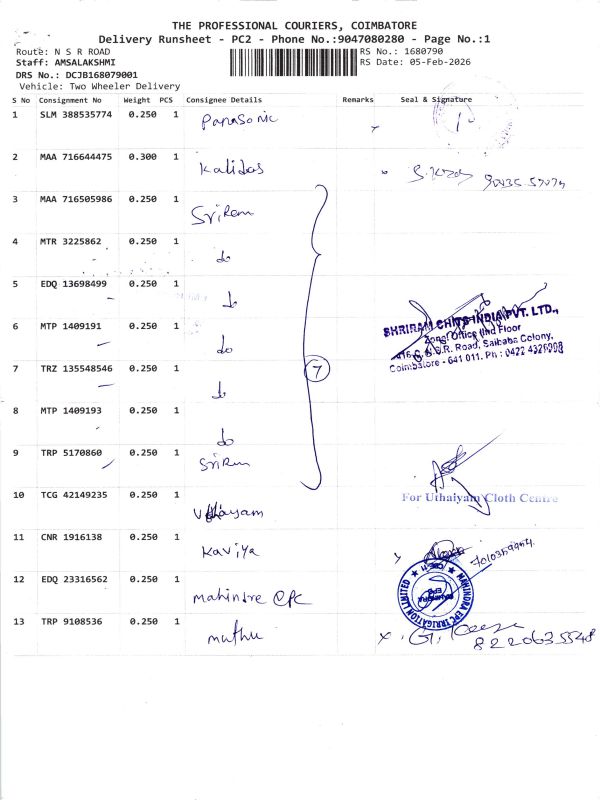 THE PROFESSIONAL COURIERS, COIMBATORE
Delivery Runsheet - PC2 - Phone No.:9047080280 - Page No.:1
Route: N S R ROAD RS No.: 1680790
Staff: AMSALAKSHMI RS Date: 05-Feb-2026
DRS No.: DCJB168079001
Vehicle: Two Wheeler Delivery
S No Consignment No Weight PCS Consignee Details Remarks Seal & Signature
1 SLM 388535774 0.250 1 Panasonic
2 MAA 716644475 0.300 1 Kalidas
3 MAA 716505986 0.250 1 SriRam
4 MTR 3225862 0.250 1 do
5 EDQ 13698499 0.250 1 do
6 MTP 1409191 0.250 1 do
SHRIRAM CHITS INDIA PVT. LTD.,
Zonal Office IInd Floor
416 G, N.S.R. Road, Saibaba Colony,
Coimbatore - 641 011. Ph : 0422 4326998
7 TRZ 135548546 0.250 1 do
7
8 MTP 1409193 0.250 1 do
9 TRP 5170860 0.250 1 SriRam
10 TCG 42149235 0.250 1 Uthayam
For Uthaiyam Cloth Centre
11 CNR 1916138 0.250 1 Kaviya
12 EDQ 23316562 0.250 1 Mahindre EPC
MAHINDRA EPC IRRIGATION LIMITED
13 TRP 9108536 0.250 1 Muthu
8220635548